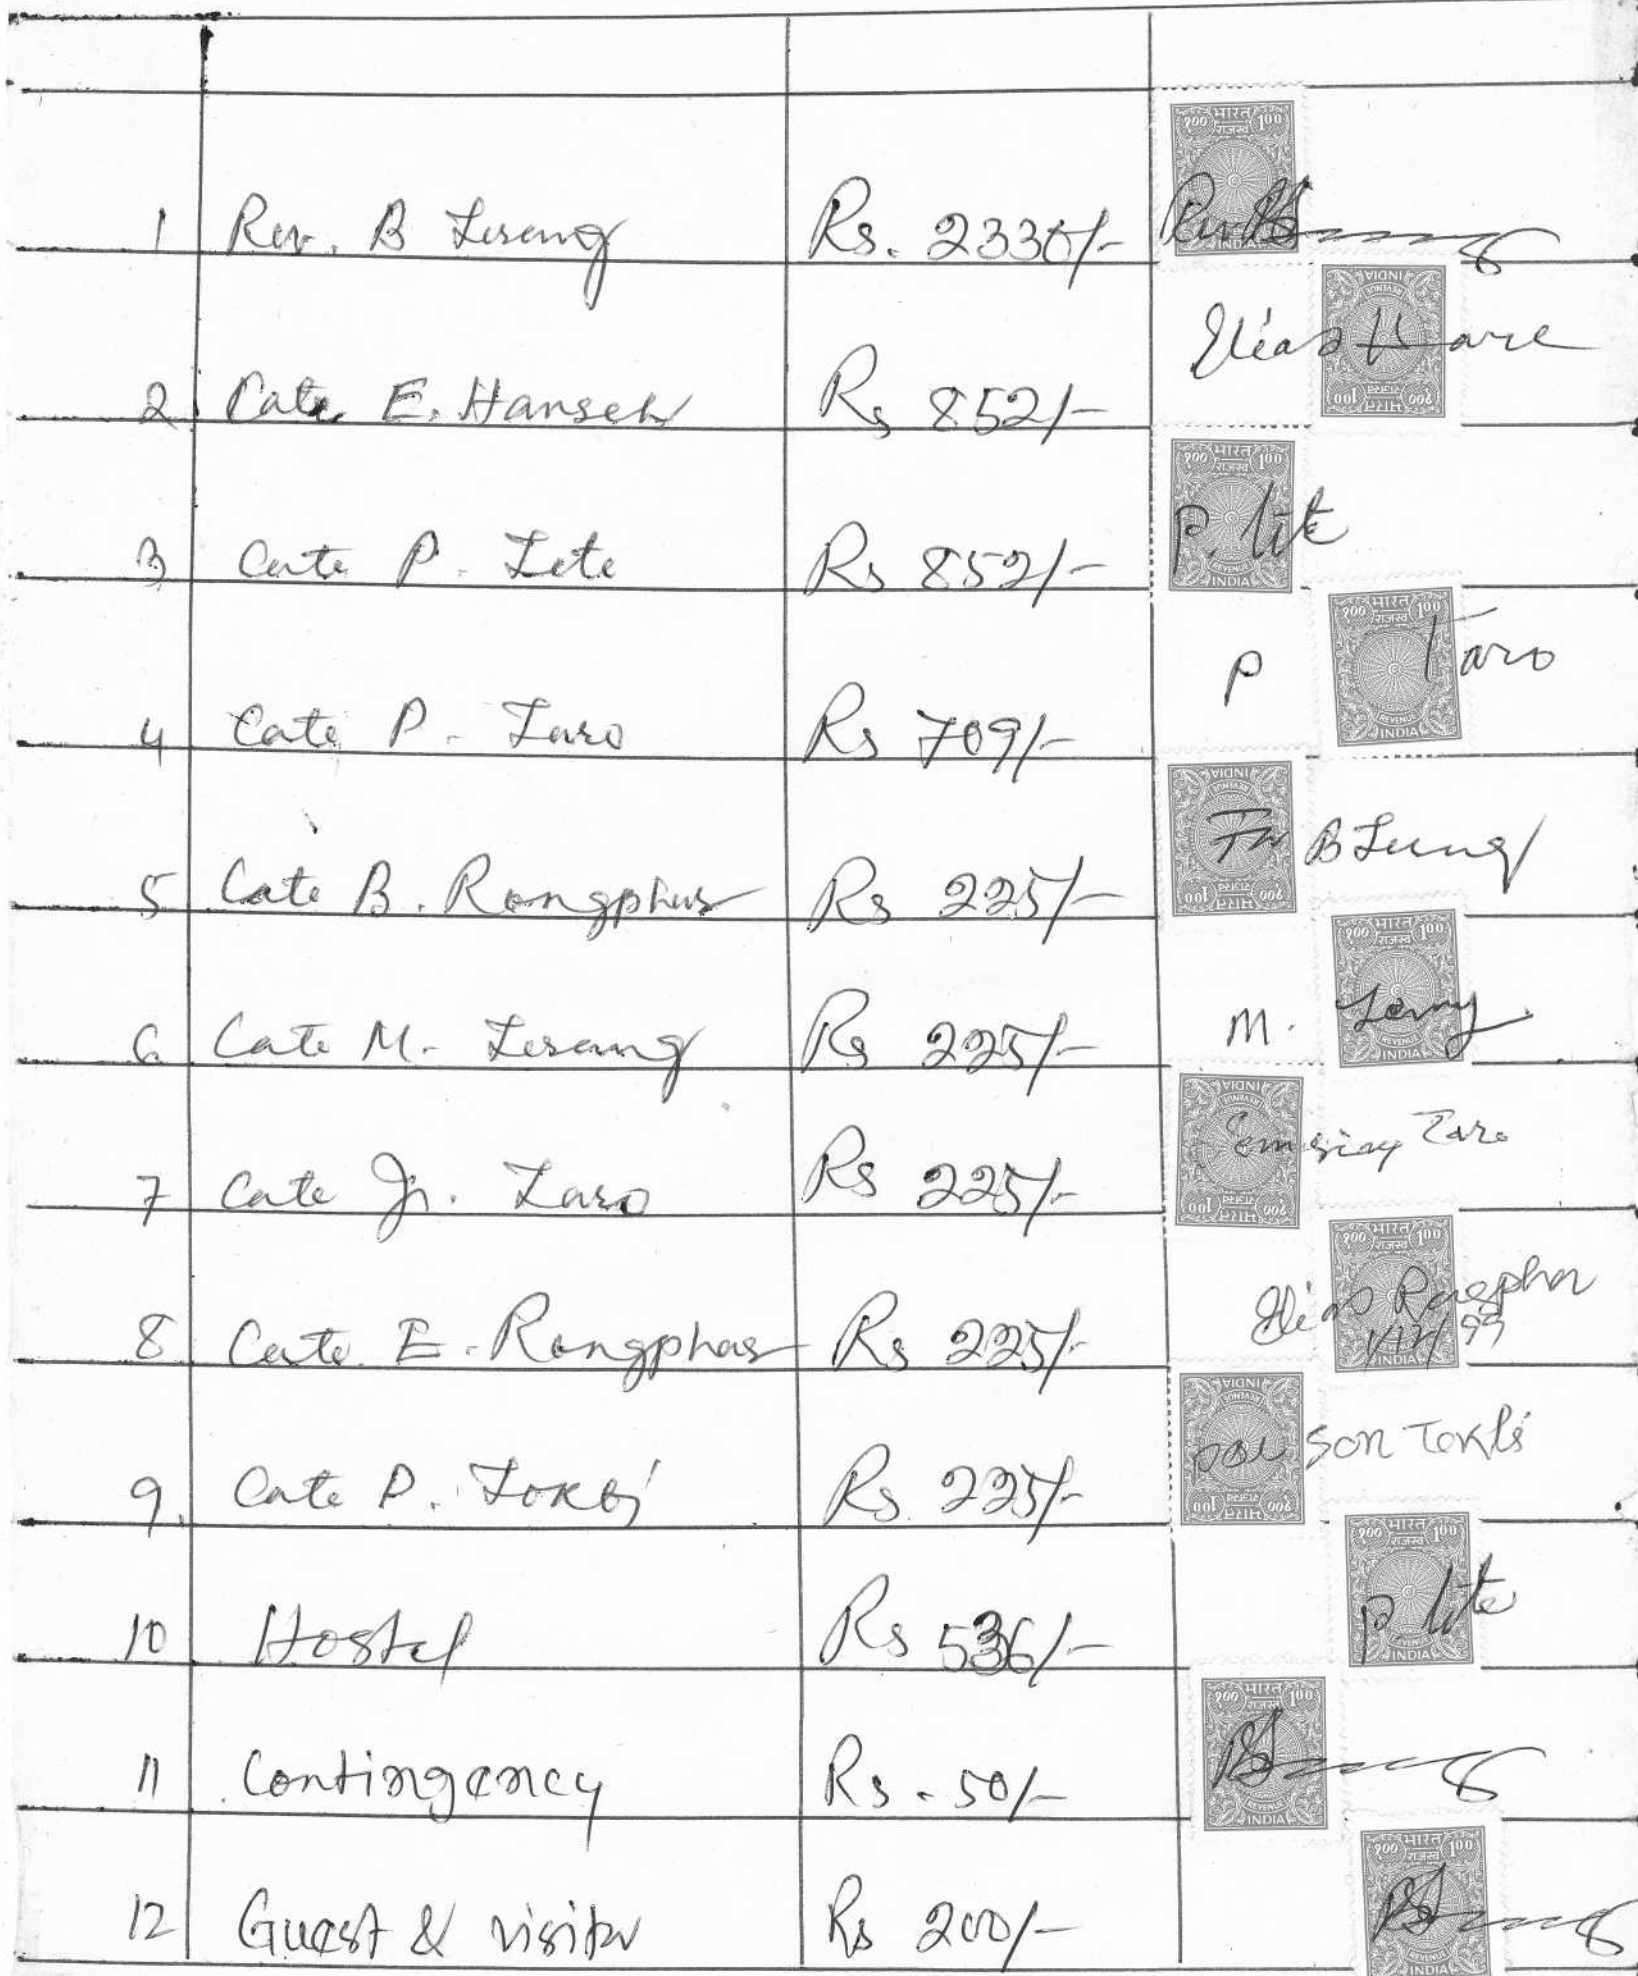 1 Rev. B Terang Rs. 2330/-
2 Cate E. Hanseh Rs 852/- Elias H
3 Cate P. Tete Rs 852/- P. Tete
4 Cate P. Taro Rs 709/- P Taro
5 Cate B. Rongphar Rs 225/- B Terang
6 Cate M. Terang Rs 225/- M.
7 Cate Jr. Taro Rs 225/- Taro
8 Cate E. Rongphar Rs 225/- Elias Rongphar
1/12/99
9. Cate D. Tokbi Rs 225/- son Tokbi
10 Hostel Rs 536/- P Tete
11 Contingency Rs. 50/-
12 Guest & visitor Rs 200/-
भारत
१०० राजस्व 100
REVENUE
INDIA